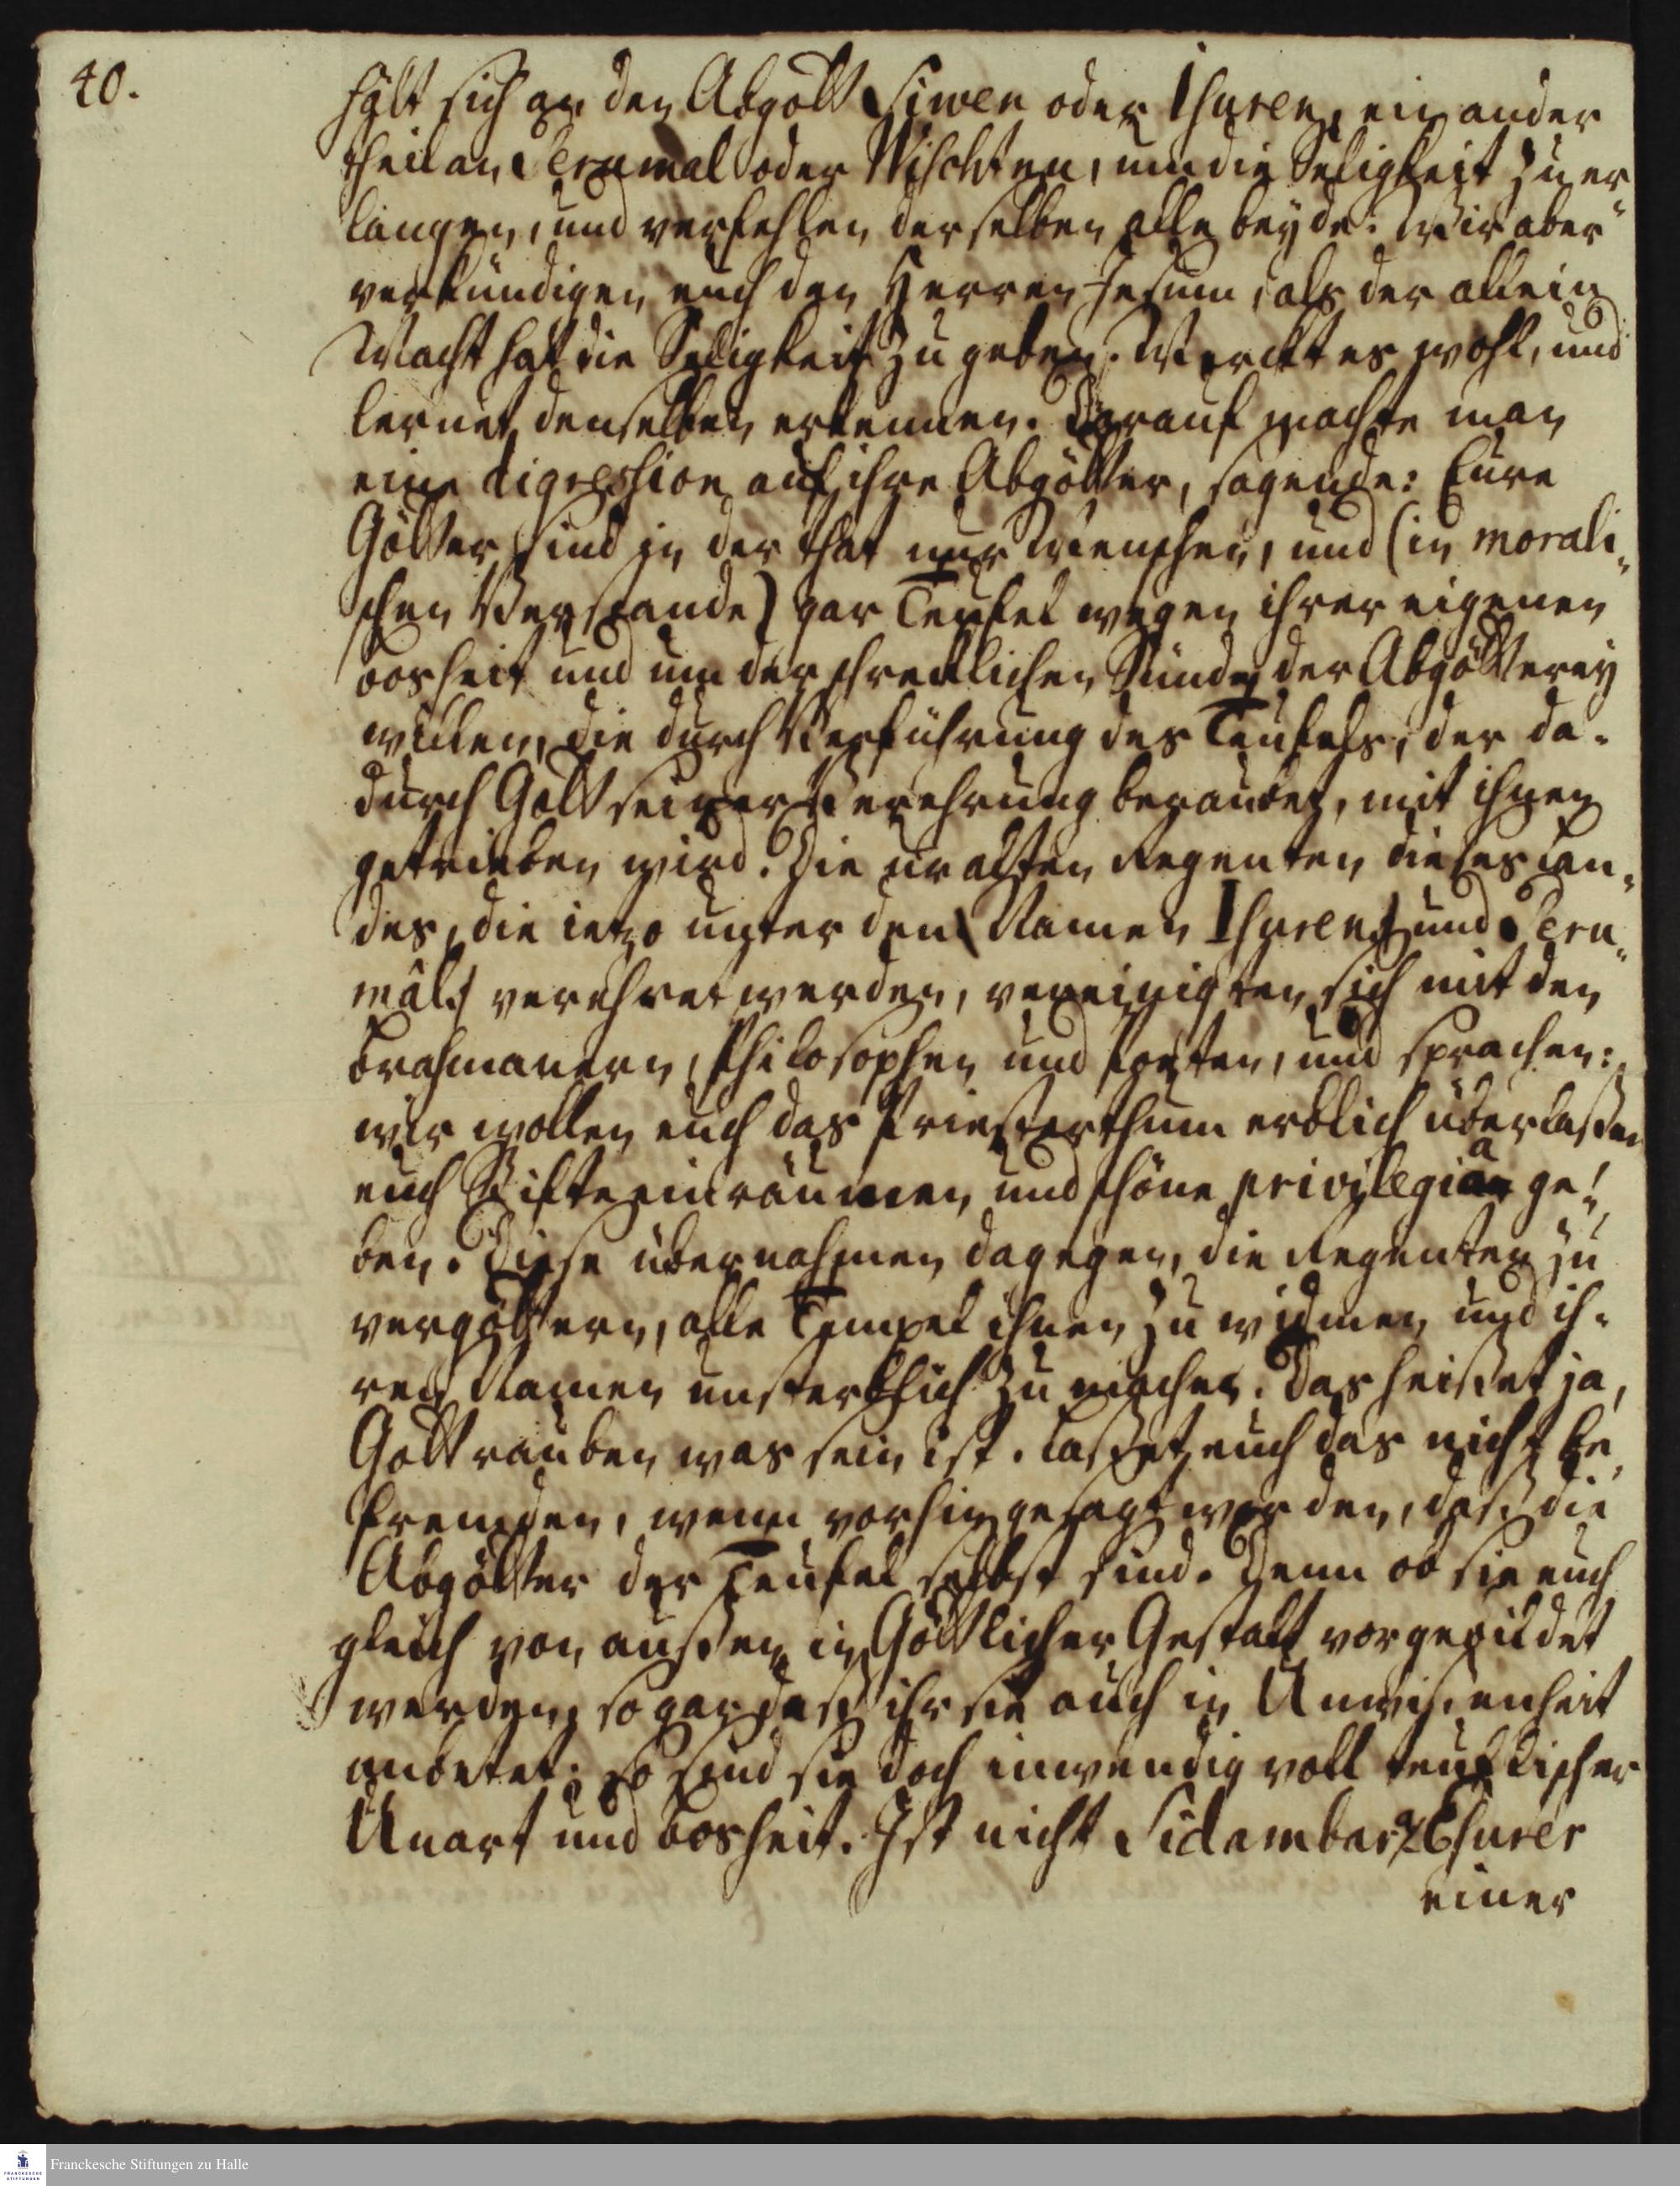 40.
hält sich an den Abgott Siwen oder Ihuren, ein ander
theil an Perumal oder Wischten, um die Seligkeit zu er¬
langen, und verfehlen derselben alle beyde. Wir aber
verkündigen euch den Herren Jesum, als der allein
Macht hat die Seligkeit zu geben. Merckt es wohl, und
lernet denselben erkennen. Darauf machte man
eine digression auf ihre Abgötter, sagende: Eure
Götter sind in der that nur Menschen, und (in morali¬
schen Verstande) gar Teufel wegen ihrer eigenen
bosheit und um der schrecklichen Sünde der Abgötterey
willen, die durch Verführung des Teufels, der da¬
durch Gott seiner Verehrung beraubet, mit ihnen
getrieben wird. Die uralten Regenten dieses Lan¬
des, die ietzo unter den Namen Ihuren und Peru¬
mâls verehret werden, vereinigten sich mit den
brahmanern, Philosophen und Poeten, und sprachen:
wir wollen euch das Priesterthum erblich überlaßen
euch Stifte einräumen und schöne privilegia ge¬
ben. Diese übernahmen dagegen, die Regenten zu
vergöttern, alle Tempel ihnen zu widmen und ih¬
ren Namen unsterblich zu machen. Das heißet ja,
Gott rauben was sein ist. Laßet euch das nicht be¬
fremden, wenn vorhin gesagt worden, daß die
Abgötter der Teufel selbst sind. Denn ob sie euch
gleich von außen in Göttlicher Gestalt vorgebildet
werden, so gar daß ihr sie auch in Unwißenheit
anbetet; so sind sie doch inwendig voll teuflischer
Unart und bosheit. Ist nicht Sidambar Esurer
einer
Franckesche Stiftungen zu Halle